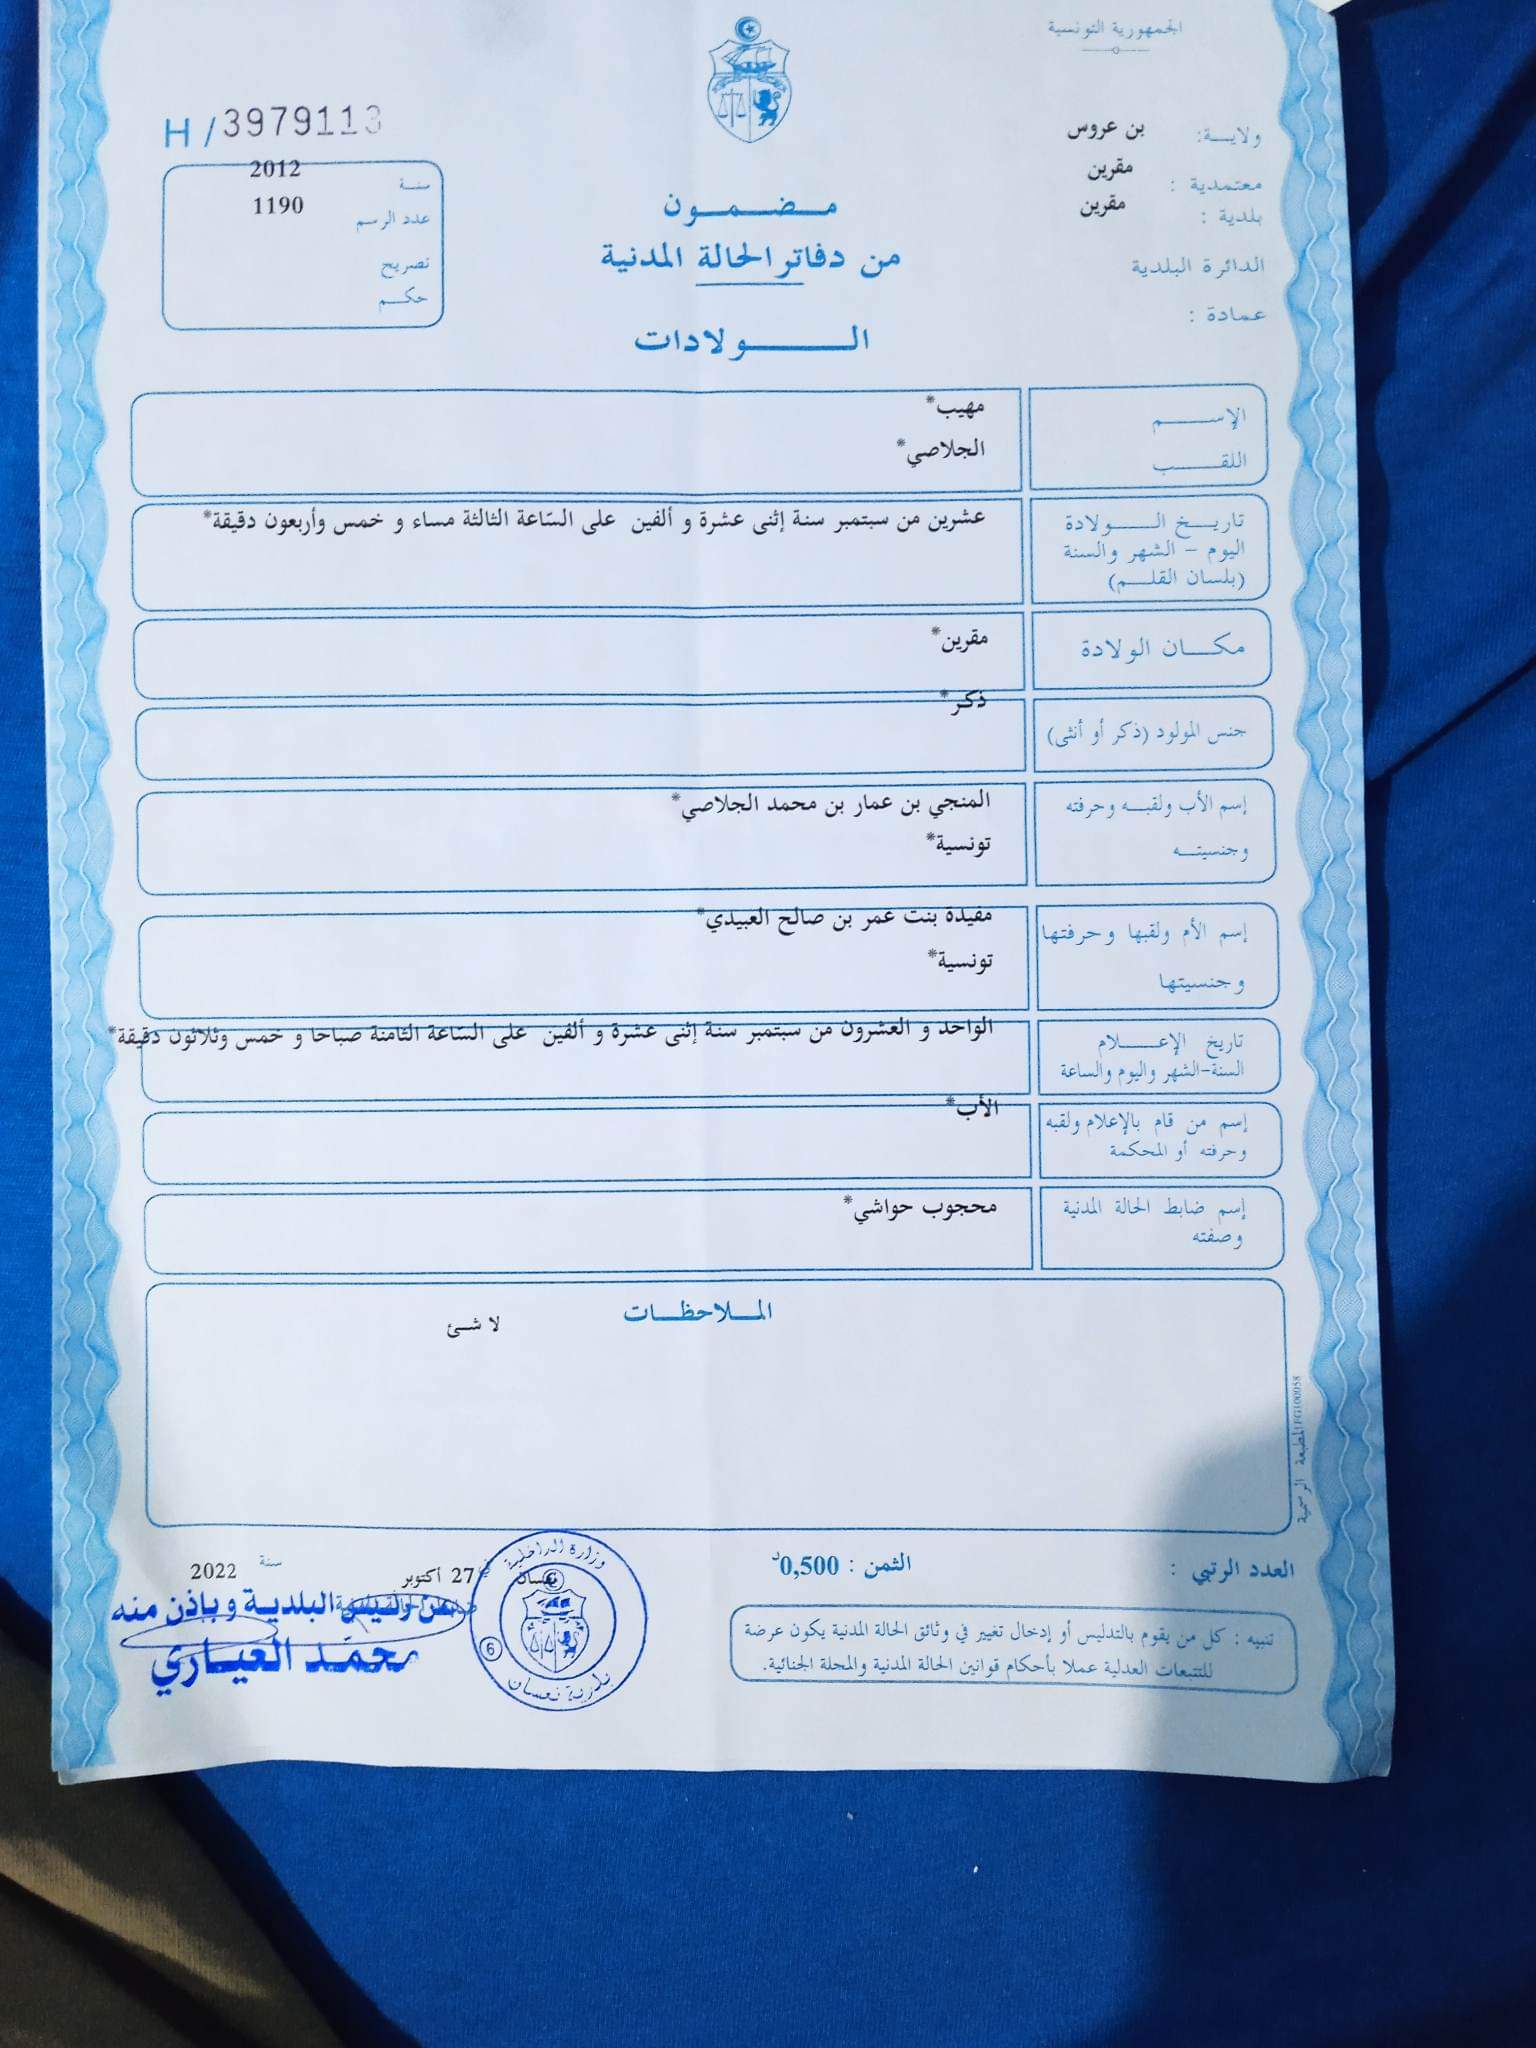 الجمهورية التونسية
H / 3979113
ولاية: بن عروس
معتمدية : مقرين
بلدية : مقرين
الدائرة البلدية
عمادة :
سنة 2012
عدد الرسم 1190
تصريح
حكم
مضمون
من دفاتر الحالة المدنية
الولادات
الإسم مهيب*
اللقب الجلاصي*
تاريخ الولادة عشرين من سبتمبر سنة إثنى عشرة و ألفين على السّاعة الثالثة مساء و خمس وأربعون دقيقة*
اليوم - الشهر والسنة
(بلسان القلم)
مكان الولادة مقرين*
جنس المولود (ذكر أو أنثى) ذكر*
إسم الأب ولقبه وحرفته المنجي بن عمار بن محمد الجلاصي*
وجنسيته تونسية*
إسم الأم ولقبها وحرفتها مفيدة بنت عمر بن صالح العبيدي*
وجنسيتها تونسية*
تاريخ الإعلام الواحد و العشرون من سبتمبر سنة إثنى عشرة و ألفين على السّاعة الثامنة صباحا و خمس وثلاثون دقيقة*
السنة-الشهر واليوم والساعة
إسم من قام بالإعلام ولقبه الأب*
وحرفته أو المحكمة
إسم ضابط الحالة المدنية محجوب حواشي*
وصفته
الملاحظات
لا شئ
المطبعة الرسمية
العدد الرتبي :
الثمن : 0,500د
نعسان في 27 أكتوبر سنة 2022
تنبيه : كل من يقوم بالتدليس أو إدخال تغيير في وثائق الحالة المدنية يكون عرضة
للتتبعات العدلية عملا بأحكام قوانين الحالة المدنية والمجلة الجنائية.
عن رئيس البلدية وباذن منه
محمّد العياري
وزارة الداخلية
بلدية نعسان
6